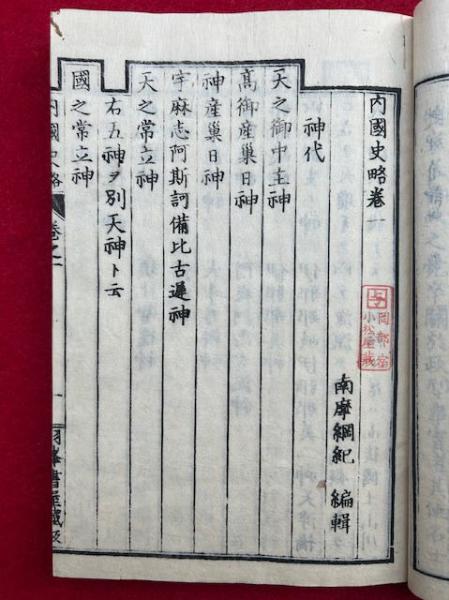 內國史略卷一
南摩綱紀 編輯
神代
天之御中主神
高御產巢日神
神產巢日神
宇麻志阿斯訶備比古遲神
天之常立神
右五神ヲ別天神ト云
國之常立神
內國史略
卷之一
岡部宿
小松屋蔵